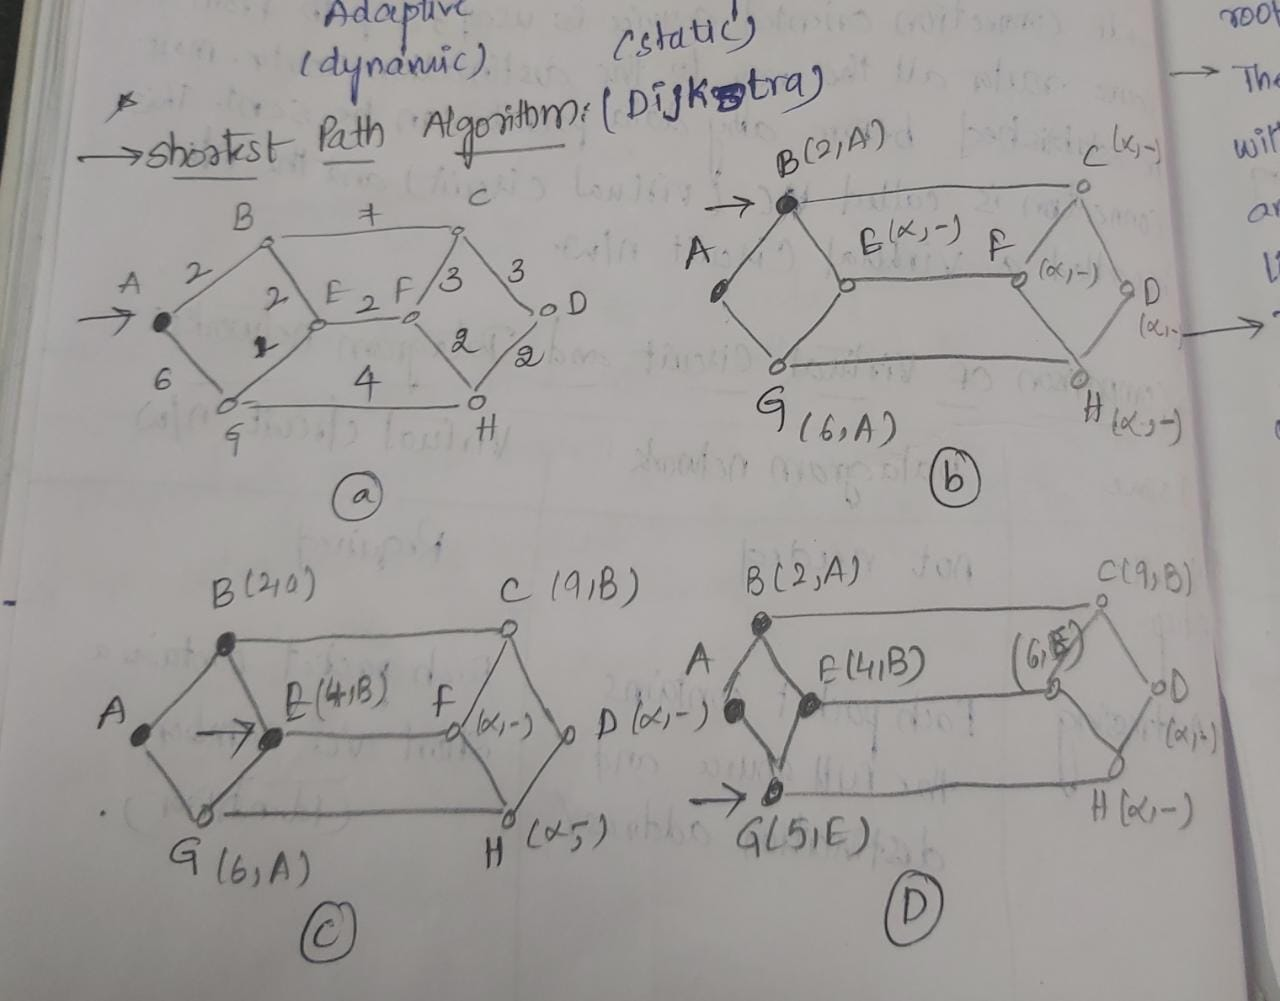 Adaptive
(dynamic)
(static)
→ Shortest Path Algorithm: (Dijkstra)
B 7 C
A 2 2 E 2 F 3 3 D
6 1 4 2 2
G H
(a)
B(2,A) C(α,-)
A E(α,-) F (α,-) D
(α,-
G (6,A) H(α,-)
(b)
B(2,a) C (9,B)
A E(4,B) F (α,-) D (α,-)
G (6,A) H (α,-)
(C)
B(2,A) C(9,B)
A E(4,B) (6,E) D
(α,-)
G(5,E) H(α,-)
(D)
root
→ The
wit
an